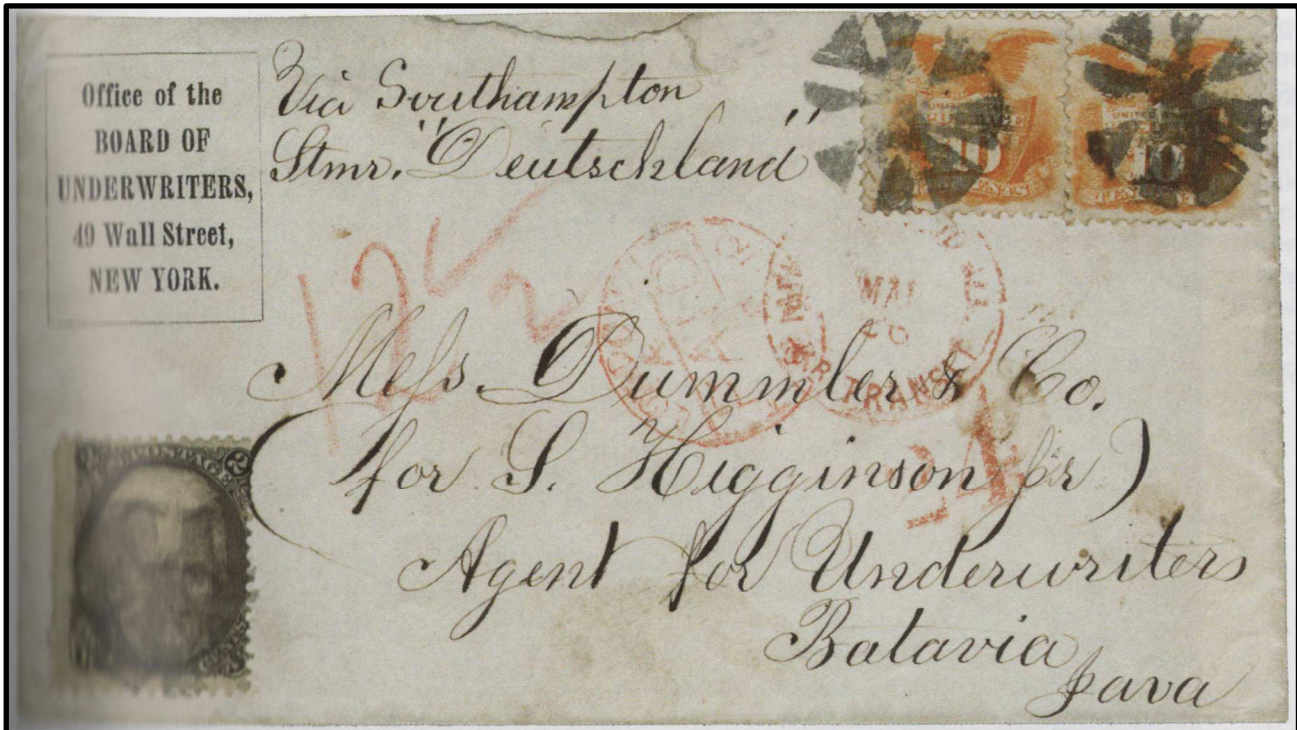 Office of the
BOARD OF
UNDERWRITERS,
49 Wall Street,
NEW YORK.
Via Southampton
Stmr. "Deutschland"
10
UNITED
10
TEN CENTS
12
2
PAID
MAR
26
TRANSIT
24
Mess. Dummler & Co.
(for S. Higginson Jr)
Agent for Underwriters
Batavia
Java
POSTAGE
2